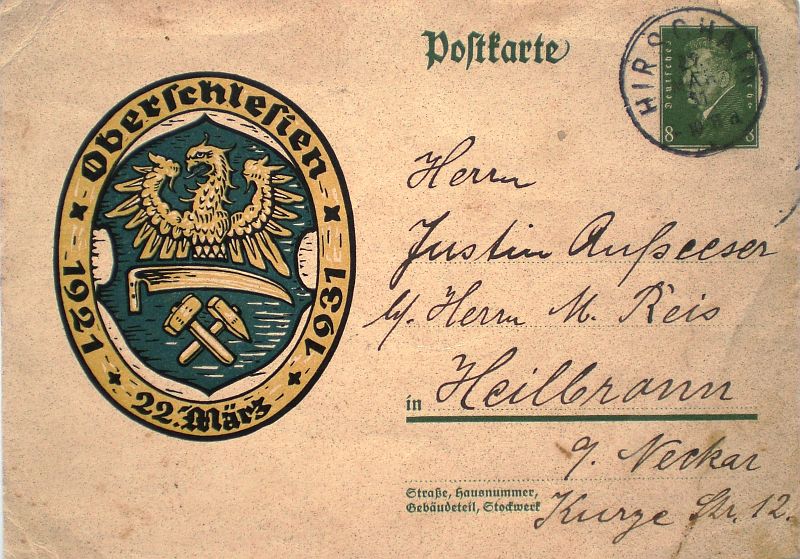 Postkarte
HIRSCHAID
Deutsches Reich
8 8
Oberschlesien
1921 1931
22. März
Herrn
Justin Aufseeser
b/. Herrn M. Reis
in Heilbronn
a/. Neckar
Straße, Hausnummer,
Gebäudeteil, Stockwerk
Kurze Str. 12.